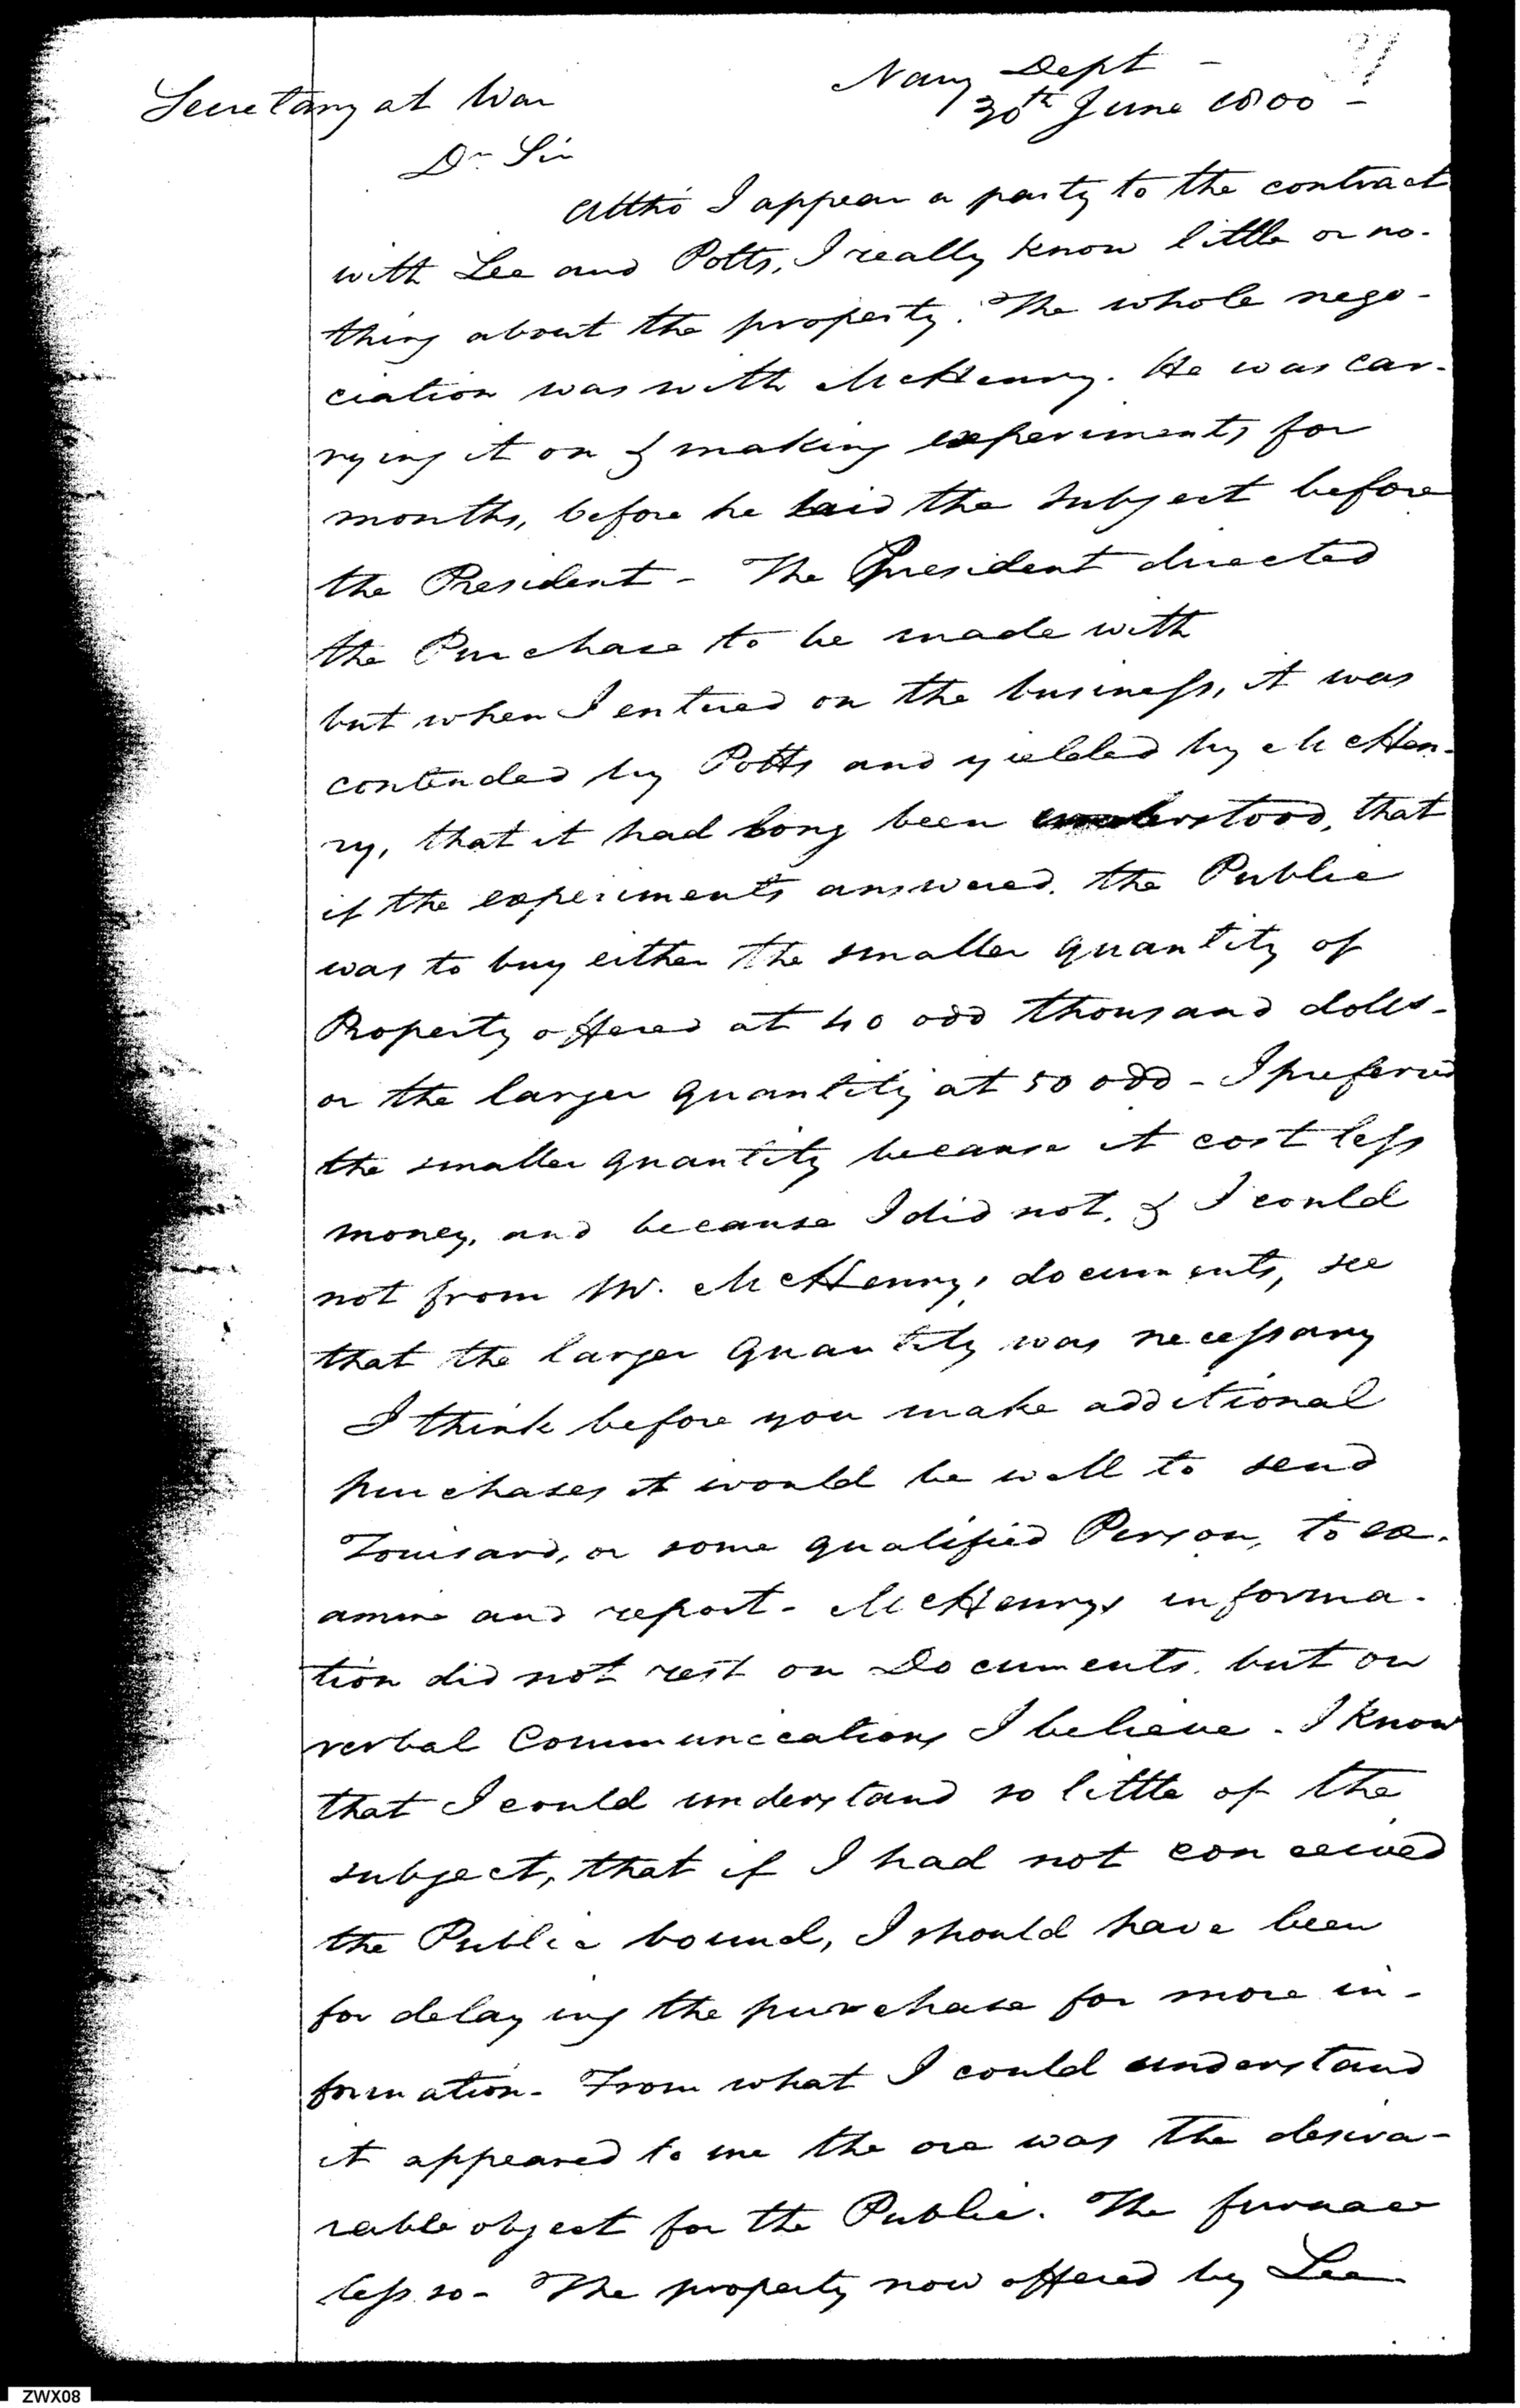 31
Navy Dept -
Secretary at War
30th June 1800 -
Dr Sir
Altho' I appear a party to the contract
with Lee and Potts, I really know little or no-
thing about the property. The whole nego-
ciation was with McHenry. He was car-
rying it on & making experiments for
months, before he laid the subject before
the President - The President directed
the Purchase to be made with
but when I entered on the business, it was
contended by Potts and yielded by McHen-
ry, that it had long been understood, that
if the experiments answered, the Public
was to buy either the smaller quantity of
Property offered at 40 odd thousand dolls-
or the larger quantity at 50 odd - I preferred
the smaller quantity because it cost less
money, and because I did not, & I could
not from Mr. McHenry's documents, see
that the larger quantity was necessary
I think before you make additional
purchases it would be well to send
Tousard, or some qualified Person, to ex-
amine and report - McHenrys informa-
tion did not rest on Documents, but on
verbal Communications I believe - I know
that I could understand so little of the
subject, that if I had not conceived
the Public bound, I should have been
for delaying the purchase for more in-
formation - From what I could understand
it appeared to me the ore was the desira-
reable object for the Public. The furnace
less so - The property now offered by Lee
ZWX08